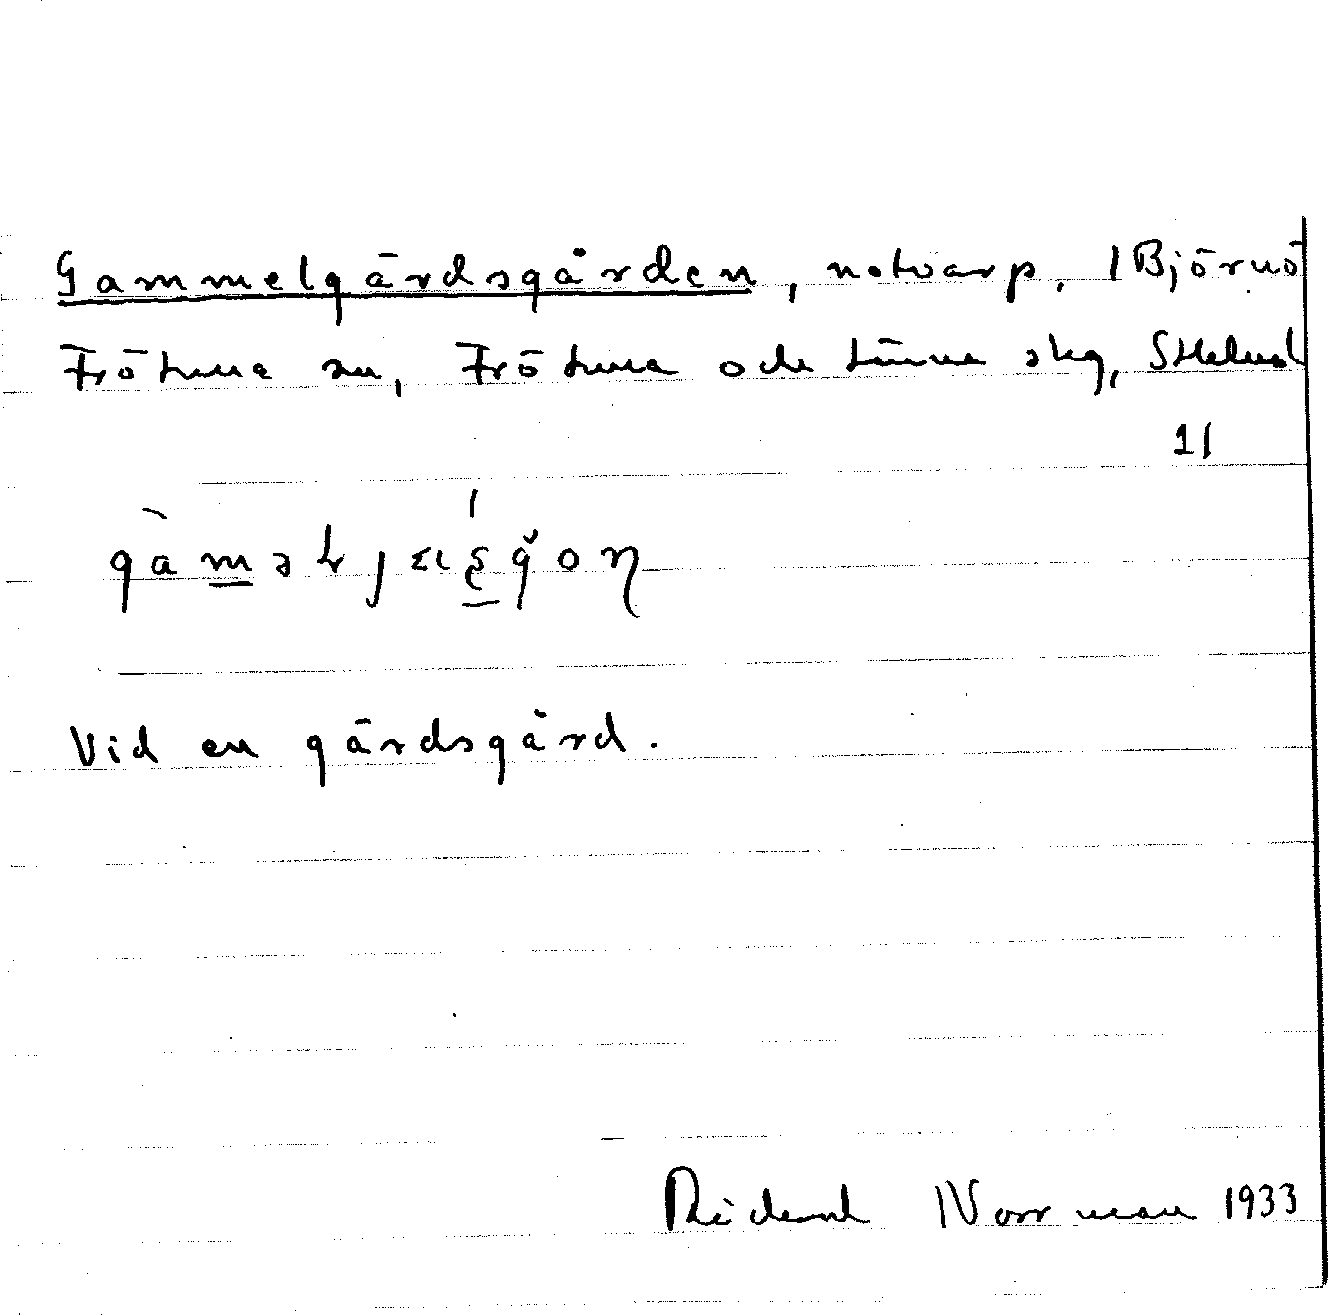 Gammelgärdsgården, notvarp, 1 Björnö
Frötuna sn, Frötuna och Länna skg, Sthlms l
11
Vid en gärdsgård.
Rickard Norrman 1933